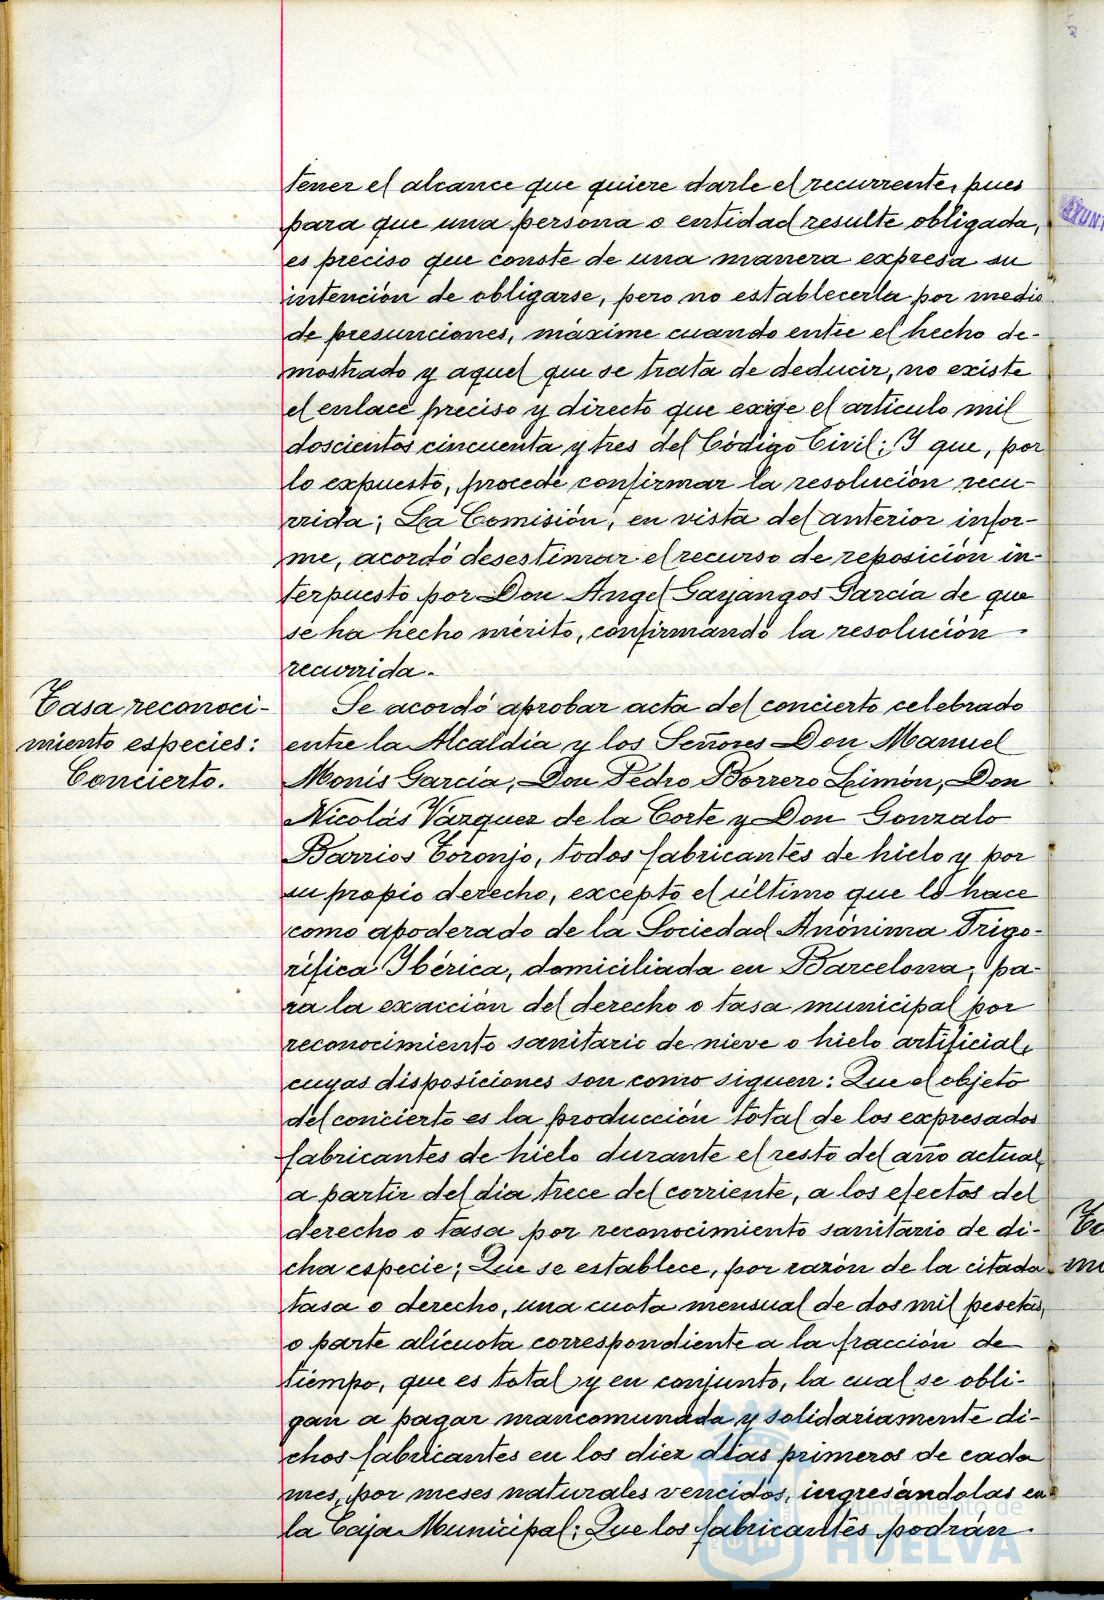 tener el alcance que quiere darle el recurrente, pues
para que una persona o entidad resulte obligada,
es preciso que conste de una manera expresa su
intención de obligarse, pero no establecerla por medio
de presunciones, máxime cuando entre el hecho de-
mostrado y aquel que se trata de deducir, no existe
el enlace preciso y directo que exige el artículo mil
doscientos cincuenta y tres del Código Civil; Y que, por
lo expuesto, procede confirmar la resolución recu-
rrida; La Comisión, en vista del anterior infor-
me, acordó desestimar el recurso de reposición in-
terpuesto por Don Angel Gayangos García de que
se ha hecho mérito, confirmando la resolución
recurrida.-
Tasa reconoci-
miento especies:
Concierto.
Se acordó aprobar acta del concierto celebrado
entre la Alcaldía y los Señores Don Manuel
Monís García, Don Pedro Borrero Limón, Don
Nicolás Vázquez de la Corte y Don Gonzalo
Barrios Toronjo, todos fabricantes de hielo y por
su propio derecho, excepto el último que lo hace
como apoderado de la Sociedad Anónima Frigo-
rífica Ibérica, domiciliada en Barcelona, pa-
ra la exacción del derecho o tasa municipal por
reconocimiento sanitario de nieve o hielo artificial,
cuyas disposiciones son como siguen: Que el objeto
del concierto es la producción total de los expresados
fabricantes de hielo durante el resto del año actual,
a partir del día trece del corriente, a los efectos del
derecho o tasa por reconocimiento sanitario de di-
cha especie; Que se establece, por razón de la citada
tasa o derecho, una cuota mensual de dos mil pesetas,
o parte alícuota correspondiente a la fracción de
tiempo, que es total y en conjunto, la cual se obli-
gan a pagar mancomunada y solidariamente di-
chos fabricantes en los diez días primeros de cada
mes, por meses naturales vencidos, ingresándolas en
la Caja Municipal; Que los fabricantes podrán
Ayuntamiento de
HUELVA